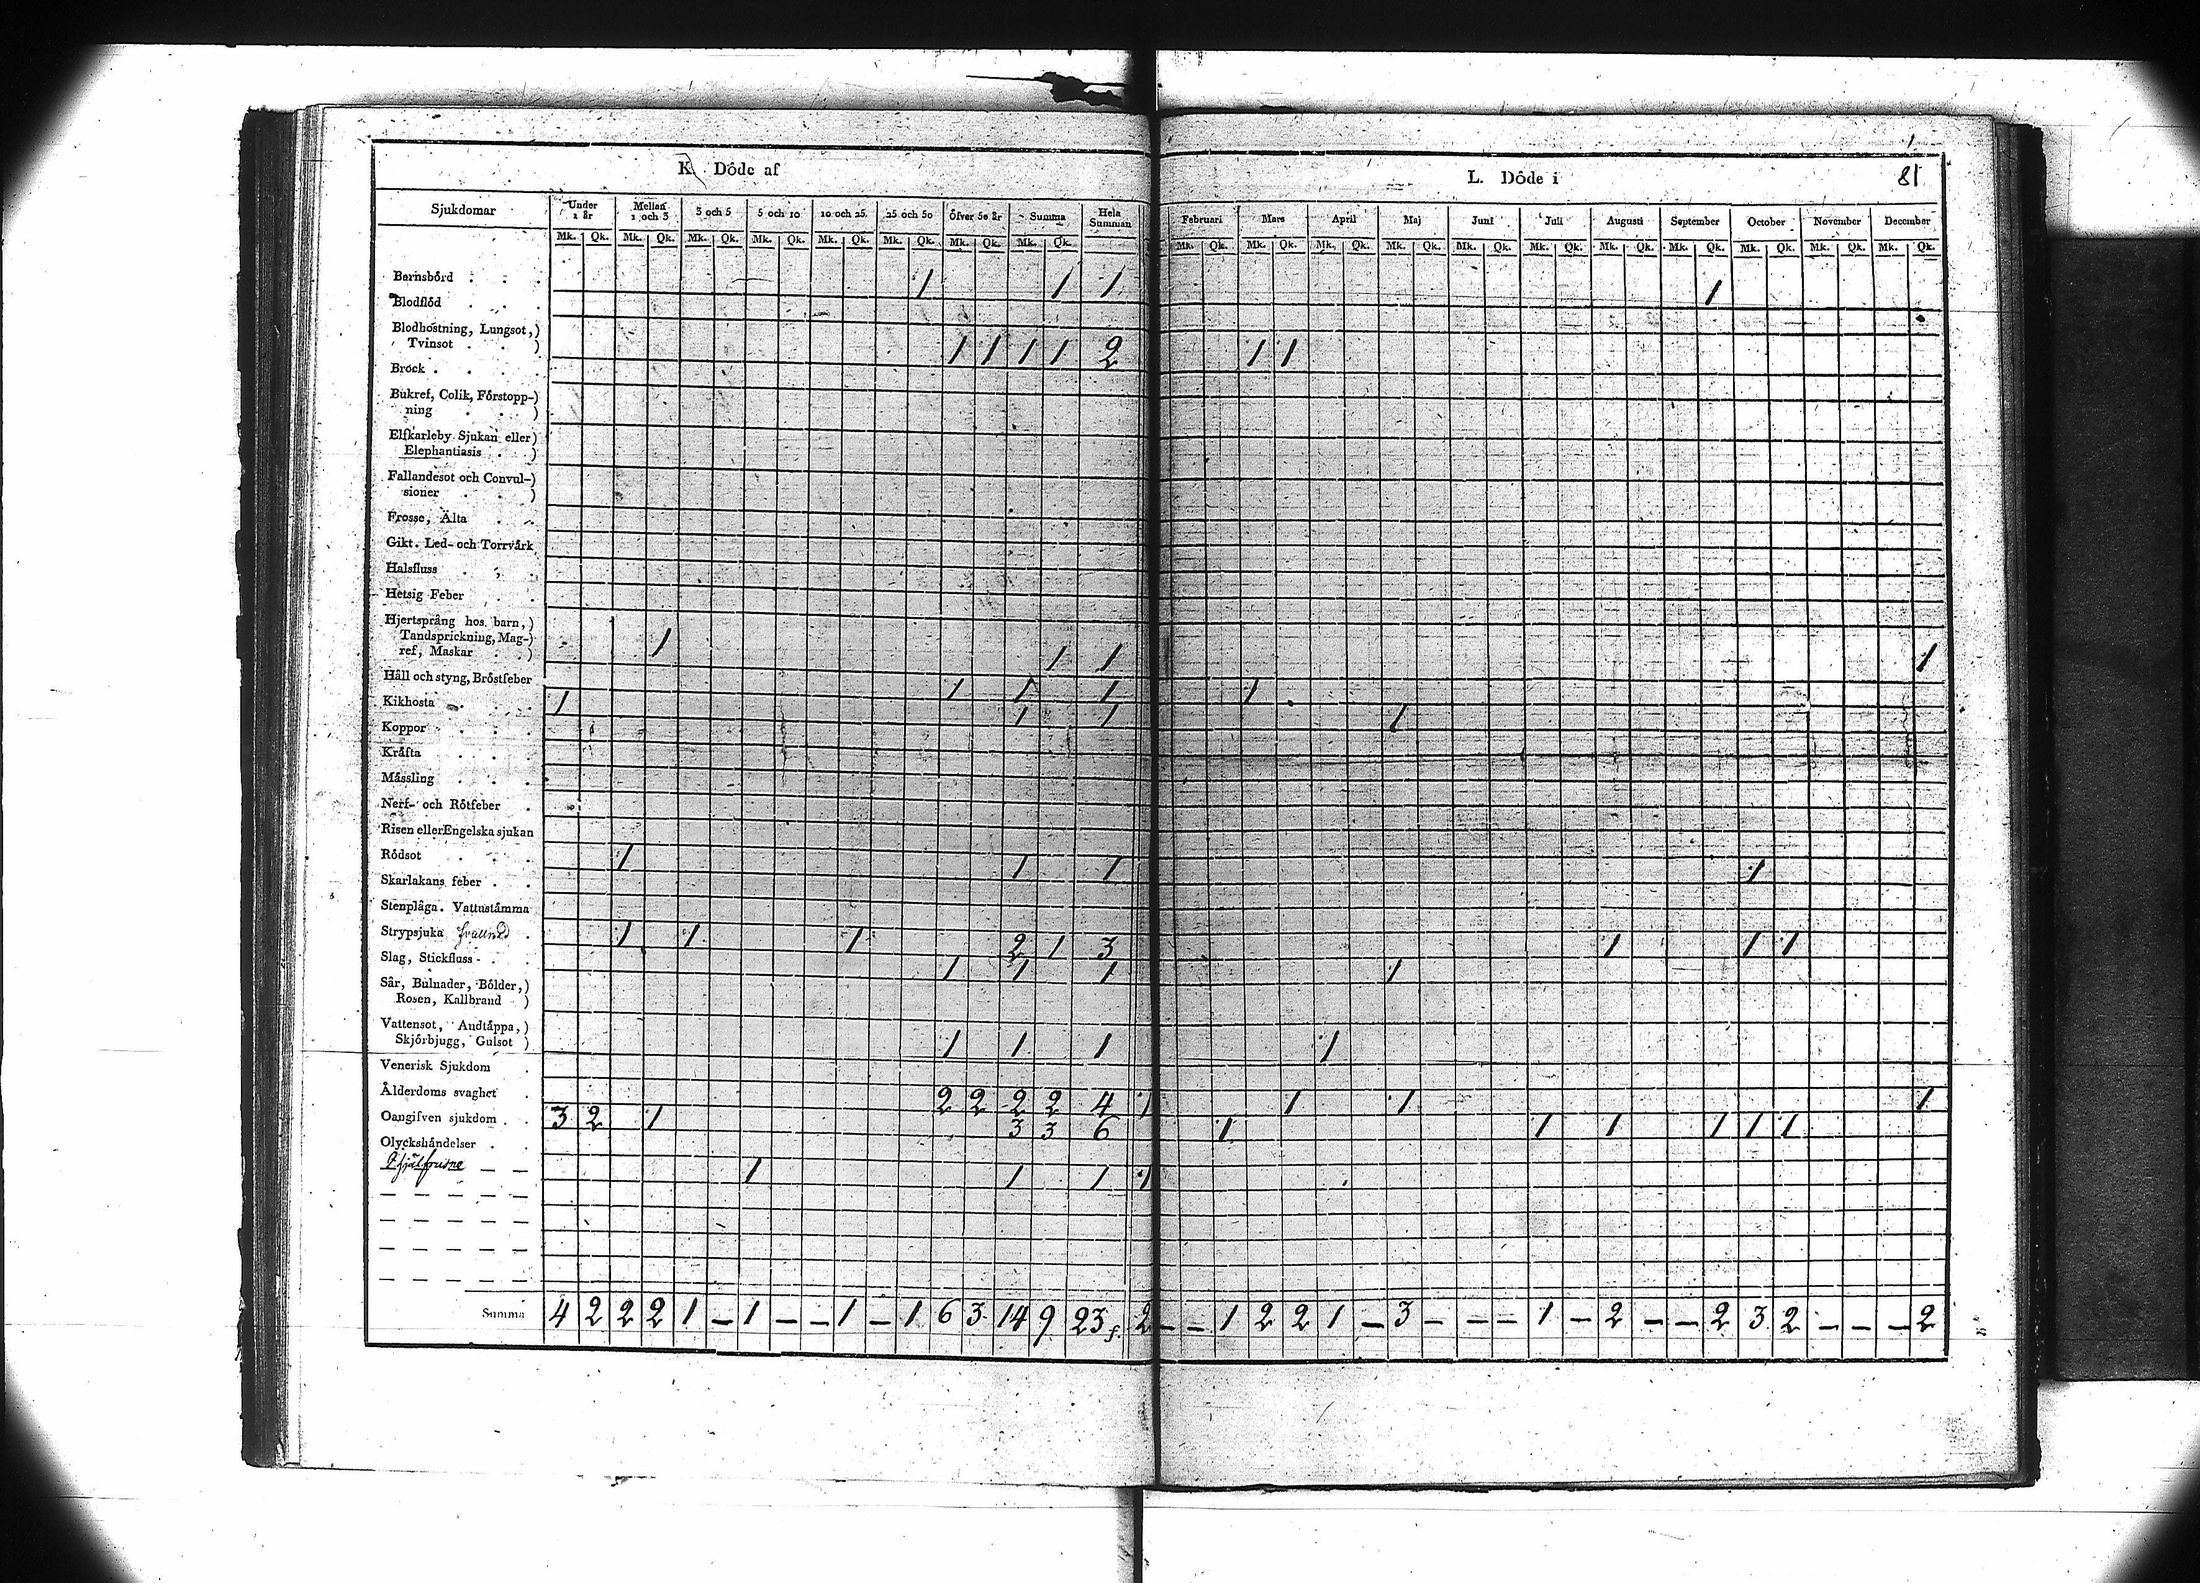 K. Döde af
L. Döde i
81
Sjukdomar
Under 1 år
Mellan 1 och 3
3 och 5
5 och 10
10 och 25
25 och 50
Öfver 50 år
Summa
Hela Summan
Februari
Mars
April
Maj
Juni
Juli
Augusti
September
October
November
December
Mk. Qk. Mk. Qk. Mk. Qk. Mk. Qk. Mk. Qk. Mk. Qk. Mk. Qk. Mk. Qk.
Mk. Qk. Mk. Qk. Mk. Qk. Mk. Qk. Mk. Qk. Mk. Qk. Mk. Qk. Mk. Qk. Mk. Qk. Mk. Qk. Mk. Qk.
Barnsbörd . . . 1 1 1 1
Blodflöd . . .
Blodhostning, Lungsot,)
Tvinsot . . ) 1 1 1 1 2 1 1
Bråck . . .
Bukref, Colik, Förstopp-)
ning . . . )
Elfkarleby Sjukan eller)
Elephantiasis . . )
Fallandesot och Convul-)
sioner . . . )
Frosse, Älta . .
Gikt. Led- och Torrvärk
Halsfluss . . .
Hetsig Feber . .
Hjertsprång hos barn,)
Tandsprickning, Mag-)
ref, Maskar . . ) 1 1 1 1
Håll och styng, Bröstfeber 1 1 1 1
Kikhosta . . . 1 1 1 1
Koppor . . .
Kräfta . . .
Måssling . . .
Nerf- och Rötfeber .
Risen eller Engelska sjukan
Rödsot . . . 1 1 1 1
Skarlakans feber . .
Stenplåga. Vattustämma
Strypsjuka . 1 1 1 2 1 3 1 1 1
Slag, Stickfluss - . . 1 1 1 1
Sår, Bulnader, Bölder,)
Rosen, Kallbrand )
Vattensot, Andtäppa,)
Skjörbjugg, Gulsot ) 1 1 1 1
Venerisk Sjukdom .
Ålderdoms svaghet . 2 2 2 2 4 1 1 1 1
Oangifven sjukdom . . 3 2 1 3 3 6 1 1 1 1 1 1
Olyckshändelser . .
1 1 1 1
Summa 4 2 2 2 1 – 1 – – 1 – 1 6 3 14 9 23 2 – – 1 2 2 1 – 3 – – – 1 – 2 – – 2 3 2 – – – 2